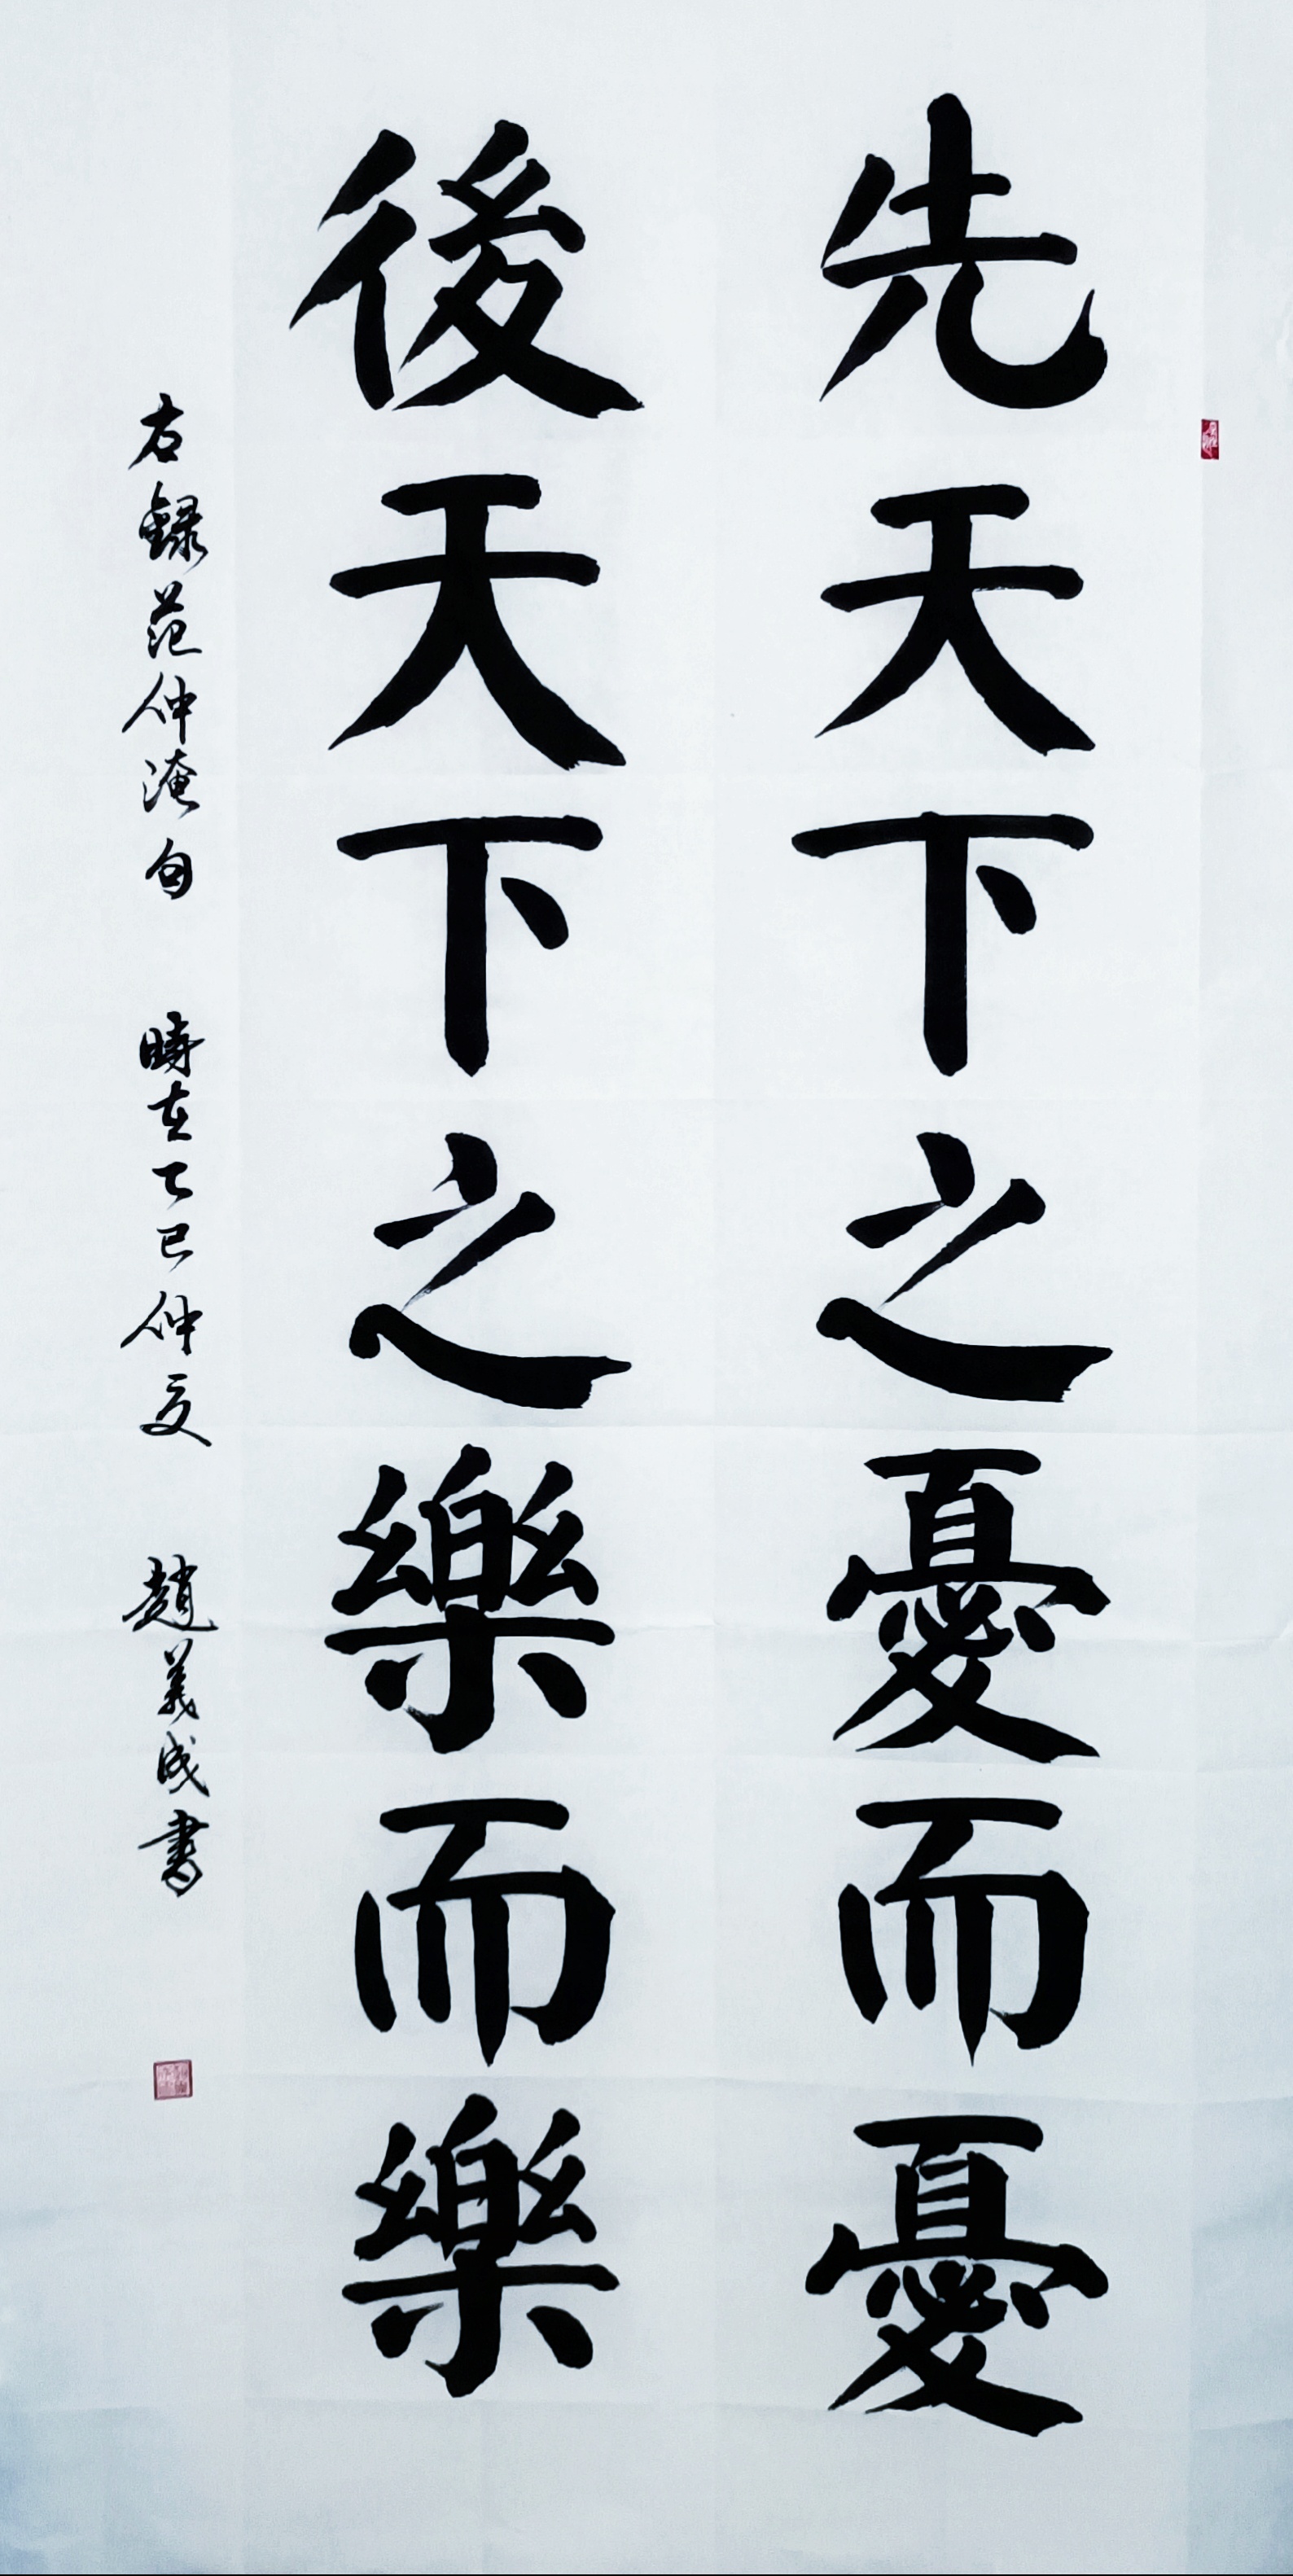 先天下之憂而憂
後天下之樂而樂
右録范仲淹句 時在乙巳仲夏 趙義成書